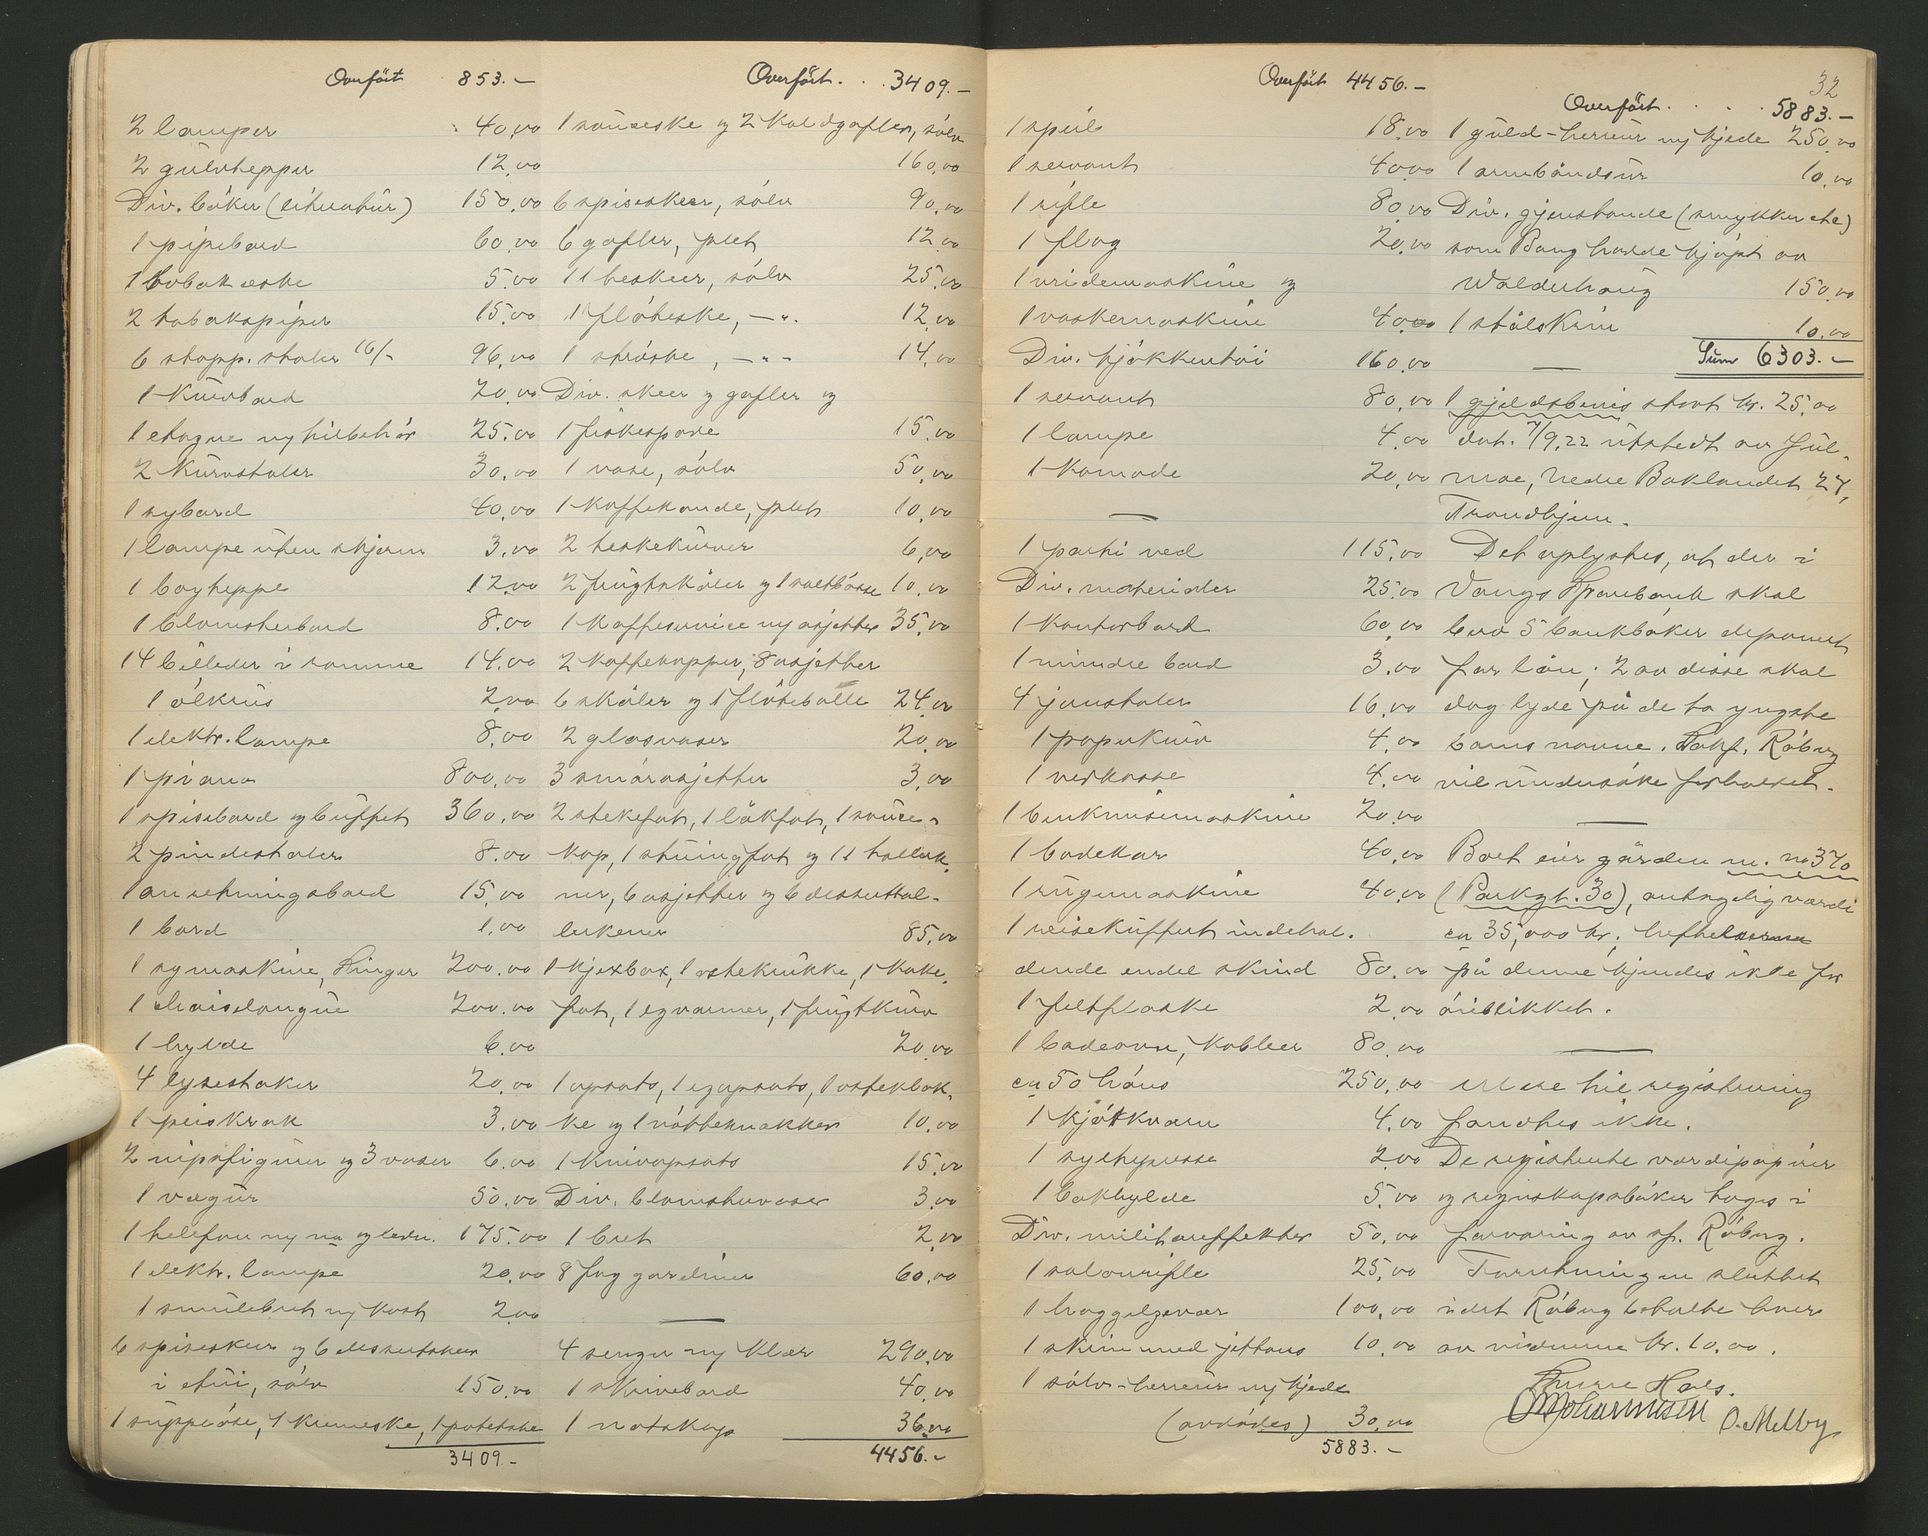 Overført 853.-
2 lamper 40,00
2 gulvtepper 12,00
Div. bøker (litteratur) 150,00
1 pipebord 60,00
1 tobakæske 5,00
2 tobakspiper 15,00
6 stopp. stoler 16/- 96,00
1 kurvbord 20,00
1 etagere m/ tilbehør 25,00
2 kurvstoler 30,00
1 sybord 40,00
1 lampe uten skjerm 3,00
1 boyteppe 12,00
1 blomsterbord 8,00
14 billeder i ramme 14,00
1 ølkrus 2,00
1 elektr. lampe 8,00
1 piano 800,00
1 spisebord og buffet 360,00
2 pindestoler 8,00
1 anretningsbord 15,00
1 bord 1,00
1 symaskine, Singer 200,00
1 chaiselongue 200,00
1 hylde 6,00
4 lysestaker 20,00
1 peiskrak 3,00
2 nipsfigurer og 3 vaser 6,00
1 vægur 50,00
1 telefon m/ no og ledn. 175,00
1 elektr. lampe 20,00
1 smulebret m/ kost 2,00
6 spiseskeer og 6 dessertskeer
i etui, sølv 150,00
1 suppeøse, 1 kremeske, 1 potetske
3409.-
Overført. . 3409.-
1 sauseske og 2 koldgafler, sølv
160,00
6 spiseskeer, sølv 90,00
6 gafler, plet 12,00
11 teskeer, sølv 25,00
1 fløteske, -"- 12,00
1 strøske, -"- 14,00
Div. skeer og gafler og
1 fiskespade 15,00
1 vase, sølv 50,00
1 kaffekande, plet 10,00
2 teskekurver 6,00
2 frugtskåler og 1 saltbøsse 10,00
1 kaffeservice m/ asjetter 35,00
2 kaffekopper, 8 asjetter
6 skåler og 1 fløtebolle 24,00
2 glasvaser 20,00
3 småasjetter 3,00
2 stekefat, 1 låkfat, 1 sauce-
kop, 1 stuingfat og 11 tallerk.
ner, 6 asjetter og 6 desserttal-
lerkener 85,00
1 kjexbox, 1 ostekrukke, 1 kake-
fat, 1 egvarmer, 1 frugtkurv
20,00
1 opsats, 1 egopsats, 1 ostekbok-
ke og 1 nøtteknækker 10,00
1 knivopsats 15,00
Div. blomstervaser 3,00
1 bret 2,00
8 fag gardiner 60,00
4 senger m/ klær 290,00
1 skrivebord 40,00
1 natskap 36,00
4456.-
Overført 4456.-
1 speil 18,00
1 servant 40,00
1 rifle 80,00
1 flag 20,00
1 vridemaskine og
1 vaskemaskine 40,00
Div. kjøkkentøi 160,00
1 servant 80,00
1 lampe 4,00
1 komode 20,00
1 parti ved 115,00
Div. materialer 25,00
1 kontorbord 60,00
1 mindre bord 3,00
4 jernstoler 16,00
1 papirkurv 4,00
1 vedkasse 4,00
1 benknusemaskine 20,00
1 badekar 40,00
1 rugemaskine 40,00
1 reisekuffert indehol-
dende endel skind 80,00
1 feltflaske 2,00
1 badeovn, kobber 80,00
ca 50 høns 250,00
1 kjøtkvern 4,00
1 syltepresse 2,00
1 bokhylde 5,00
Div. militæreffekter 50,00
1 salonrifle 25,00
1 haggelgevær 100,00
1 skrin med jettons 10,00
1 sølv-herreur m/ kjede
(avdødes) 30,00
5883.-
32
Overført. . . 5883.-
1 guld-herreur m/ kjede 250,00
1 armbåndsur 10,00
Div. gjenstande (smykker etc)
som Bang hadde kjøpt av
Walderhaug 150,00
1 stålskrin 10,00
Sum 6303.-
1 gjeldsbevis stort kr. 25,00
dat. 7/9.22 utstedt av Jul.
moe, Nedre Baklandet 27,
Trondhjem.
Det oplystes, at der i
Vangs Sparebank skal
bero 5 bankbøker deponert
for lån; 2 av disse skal
dog lyde på de to yngste
barns navne. Røberg
vil undersøke forholdet.
Boet eier gården m. no 370
(Parkgt. 30), antagelig værdi
ca 35,000 kr. heftelserne
på denne kjendes ikke for
øieblikket.
Mere til registrering
fandtes ikke.
De registrerte værdipapirer
og regnskapsbøker toges i
forvaring av sf. Røberg.
Forretningen sluttet
idet Røberg betalte hver
av vidnerne kr. 10,00.
O. Johannessen O. Melby